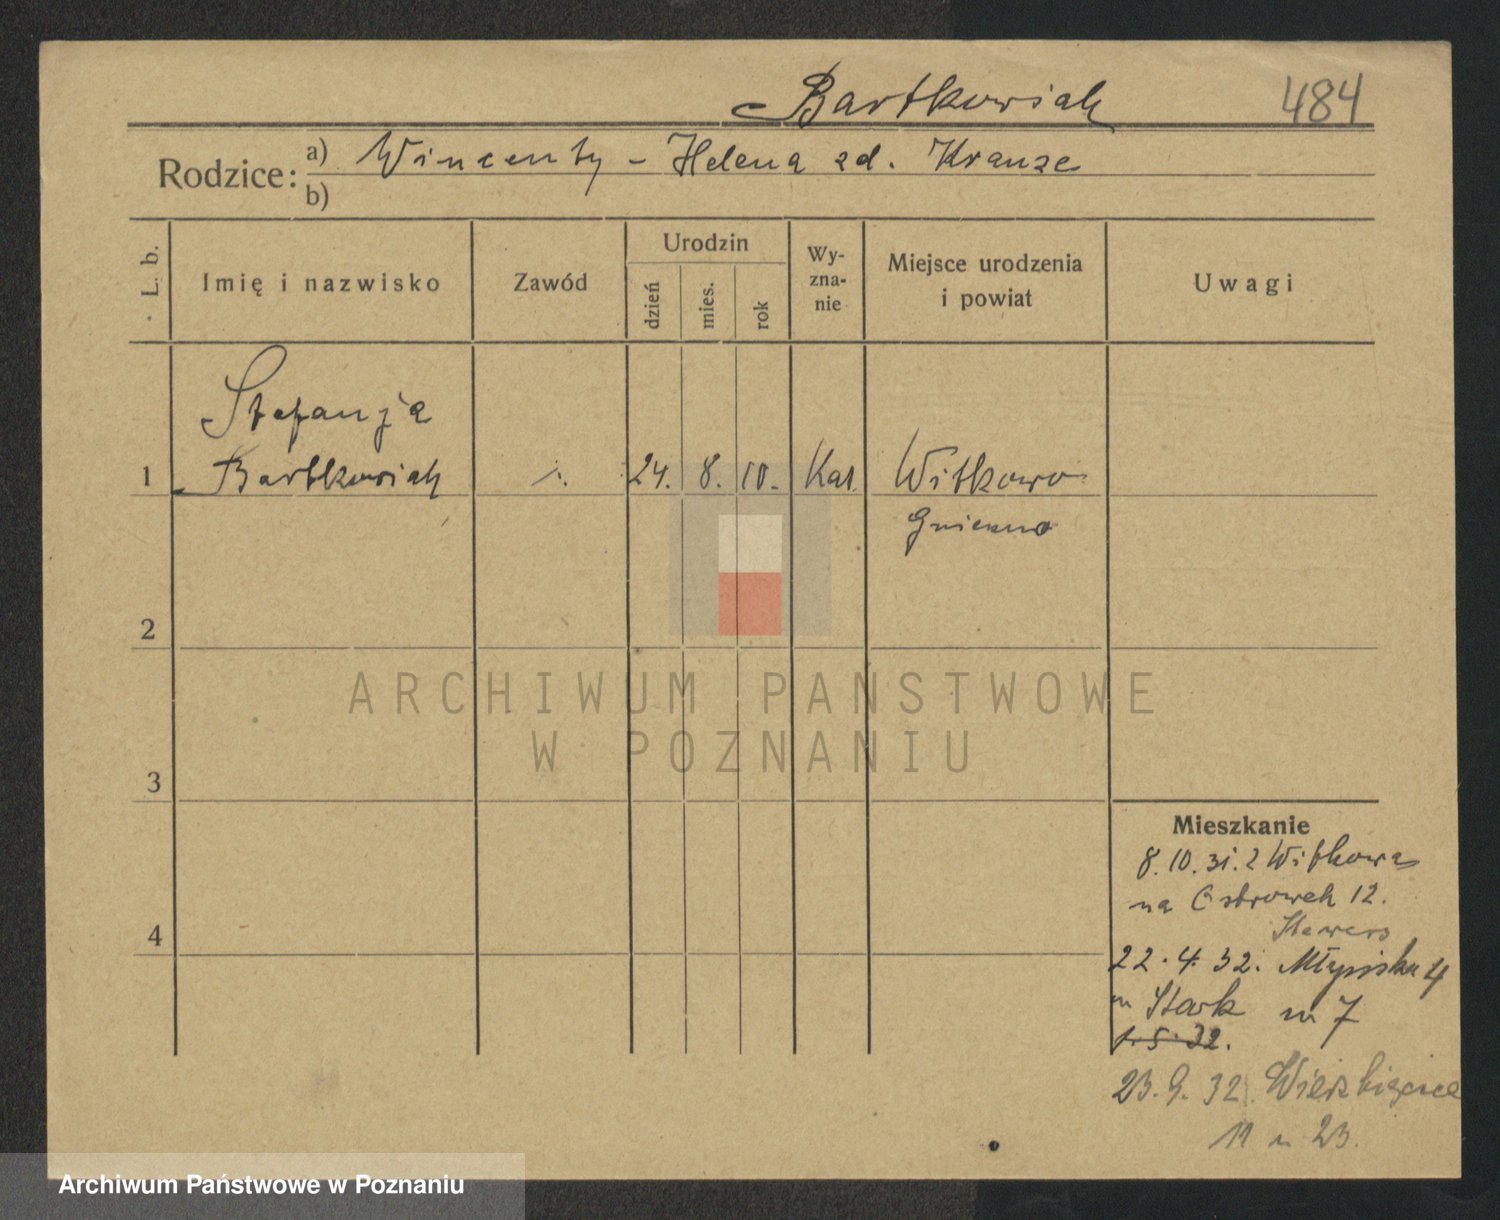 Bartkowiak 484
Rodzice: a) Wincenty - Helena zd. Krauze
b)
L. b.
Imię i nazwisko
Zawód
Urodzin
dzień
mies.
rok
Wy-
zna-
nie
Miejsce urodzenia
i powiat
Uwagi
Stefanja
1 Bartkowiak 24. 8. 10. Kat. Witkowo
Gniezno
2
ARCHIWUM PAŃSTWOWE
W POZNANIU
3
Mieszkanie
8.10.31. z Witkowa
na Ostrowek 12.
4
22.4.32. Młyńska 4
m Stark m 7
1.5.32.
23.9.32. Wierzbięcice
11 m 23.
Archiwum Państwowe w Poznaniu